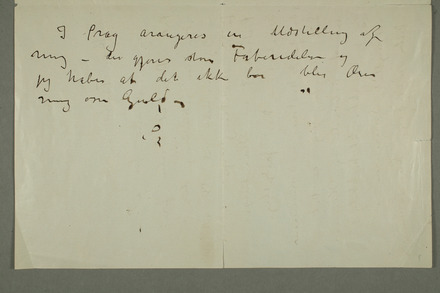 I Prag arangeres en Udstilling af
mig – der gjøres store Forberedelser og
jeg håber at det ikke bare blir Ære
mig om Guld –